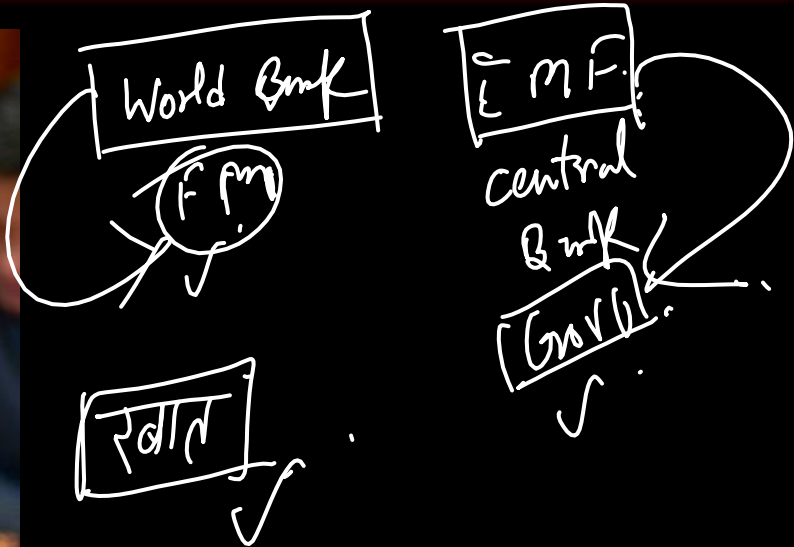 World Bank
FM
IMF.
central
Bank
Gov
रबात